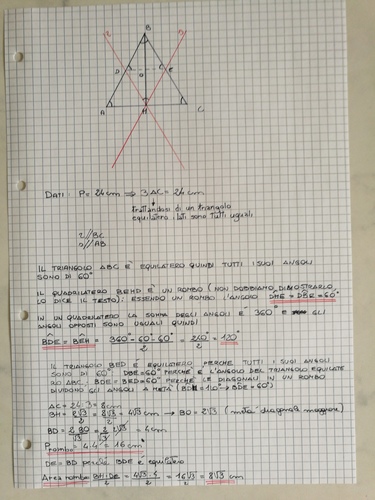 B
D
O
E
A
H
C
Dati: P = 24 cm ⇒ 3 AC = 24 cm
trattandosi di un triangolo
equilatero i lati sono tutti uguali
r // BC
s // AB
IL TRIANGOLO ABC È EQUILATERO QUINDI TUTTI I SUOI ANGOLI
SONO DI 60°
IL QUADRILATERO BEHD È UN ROMBO (NON DOBBIAMO DIMOSTRARLO
LO DICE IL TESTO); ESSENDO UN ROMBO L'ANGOLO DHE = DBE = 60°
IN UN QUADRILATERO LA SOMMA DEGLI ANGOLI È 360° E GLI
ANGOLI OPPOSTI SONO UGUALI QUINDI
BDE = BEH = 360 - 60 - 60 / 2 = 240° / 2 = 120°
IL TRIANGOLO BED È EQUILATERO PERCHÉ TUTTI I SUOI ANGOLI
SONO DI 60° DBE = 60° PERCHÉ È L'ANGOLO DEL TRIANGOLO EQUILATE
RO ABC, BDE = BED = 60° PERCHÉ LE DIAGONALI IN UN ROMBO
DIVIDONO GLI ANGOLI A METÀ (120° → 60°)
AC = 24 : 3 = 8 cm
BH = 8√3 / 2 = 4√3 cm ⇒ BO = 2√3 (metà diagonale maggiore)
BD = 2 · BO / √3 = 2 · 2√3 / √3 = 4 cm
P rombo = 4 · 4 = 16 cm
DE = BD perché BDE è equilatero
Area rombo = BH · DE / 2 = 4√3 · 4 / 2 = 16√3 / 2 = 8√3 cm